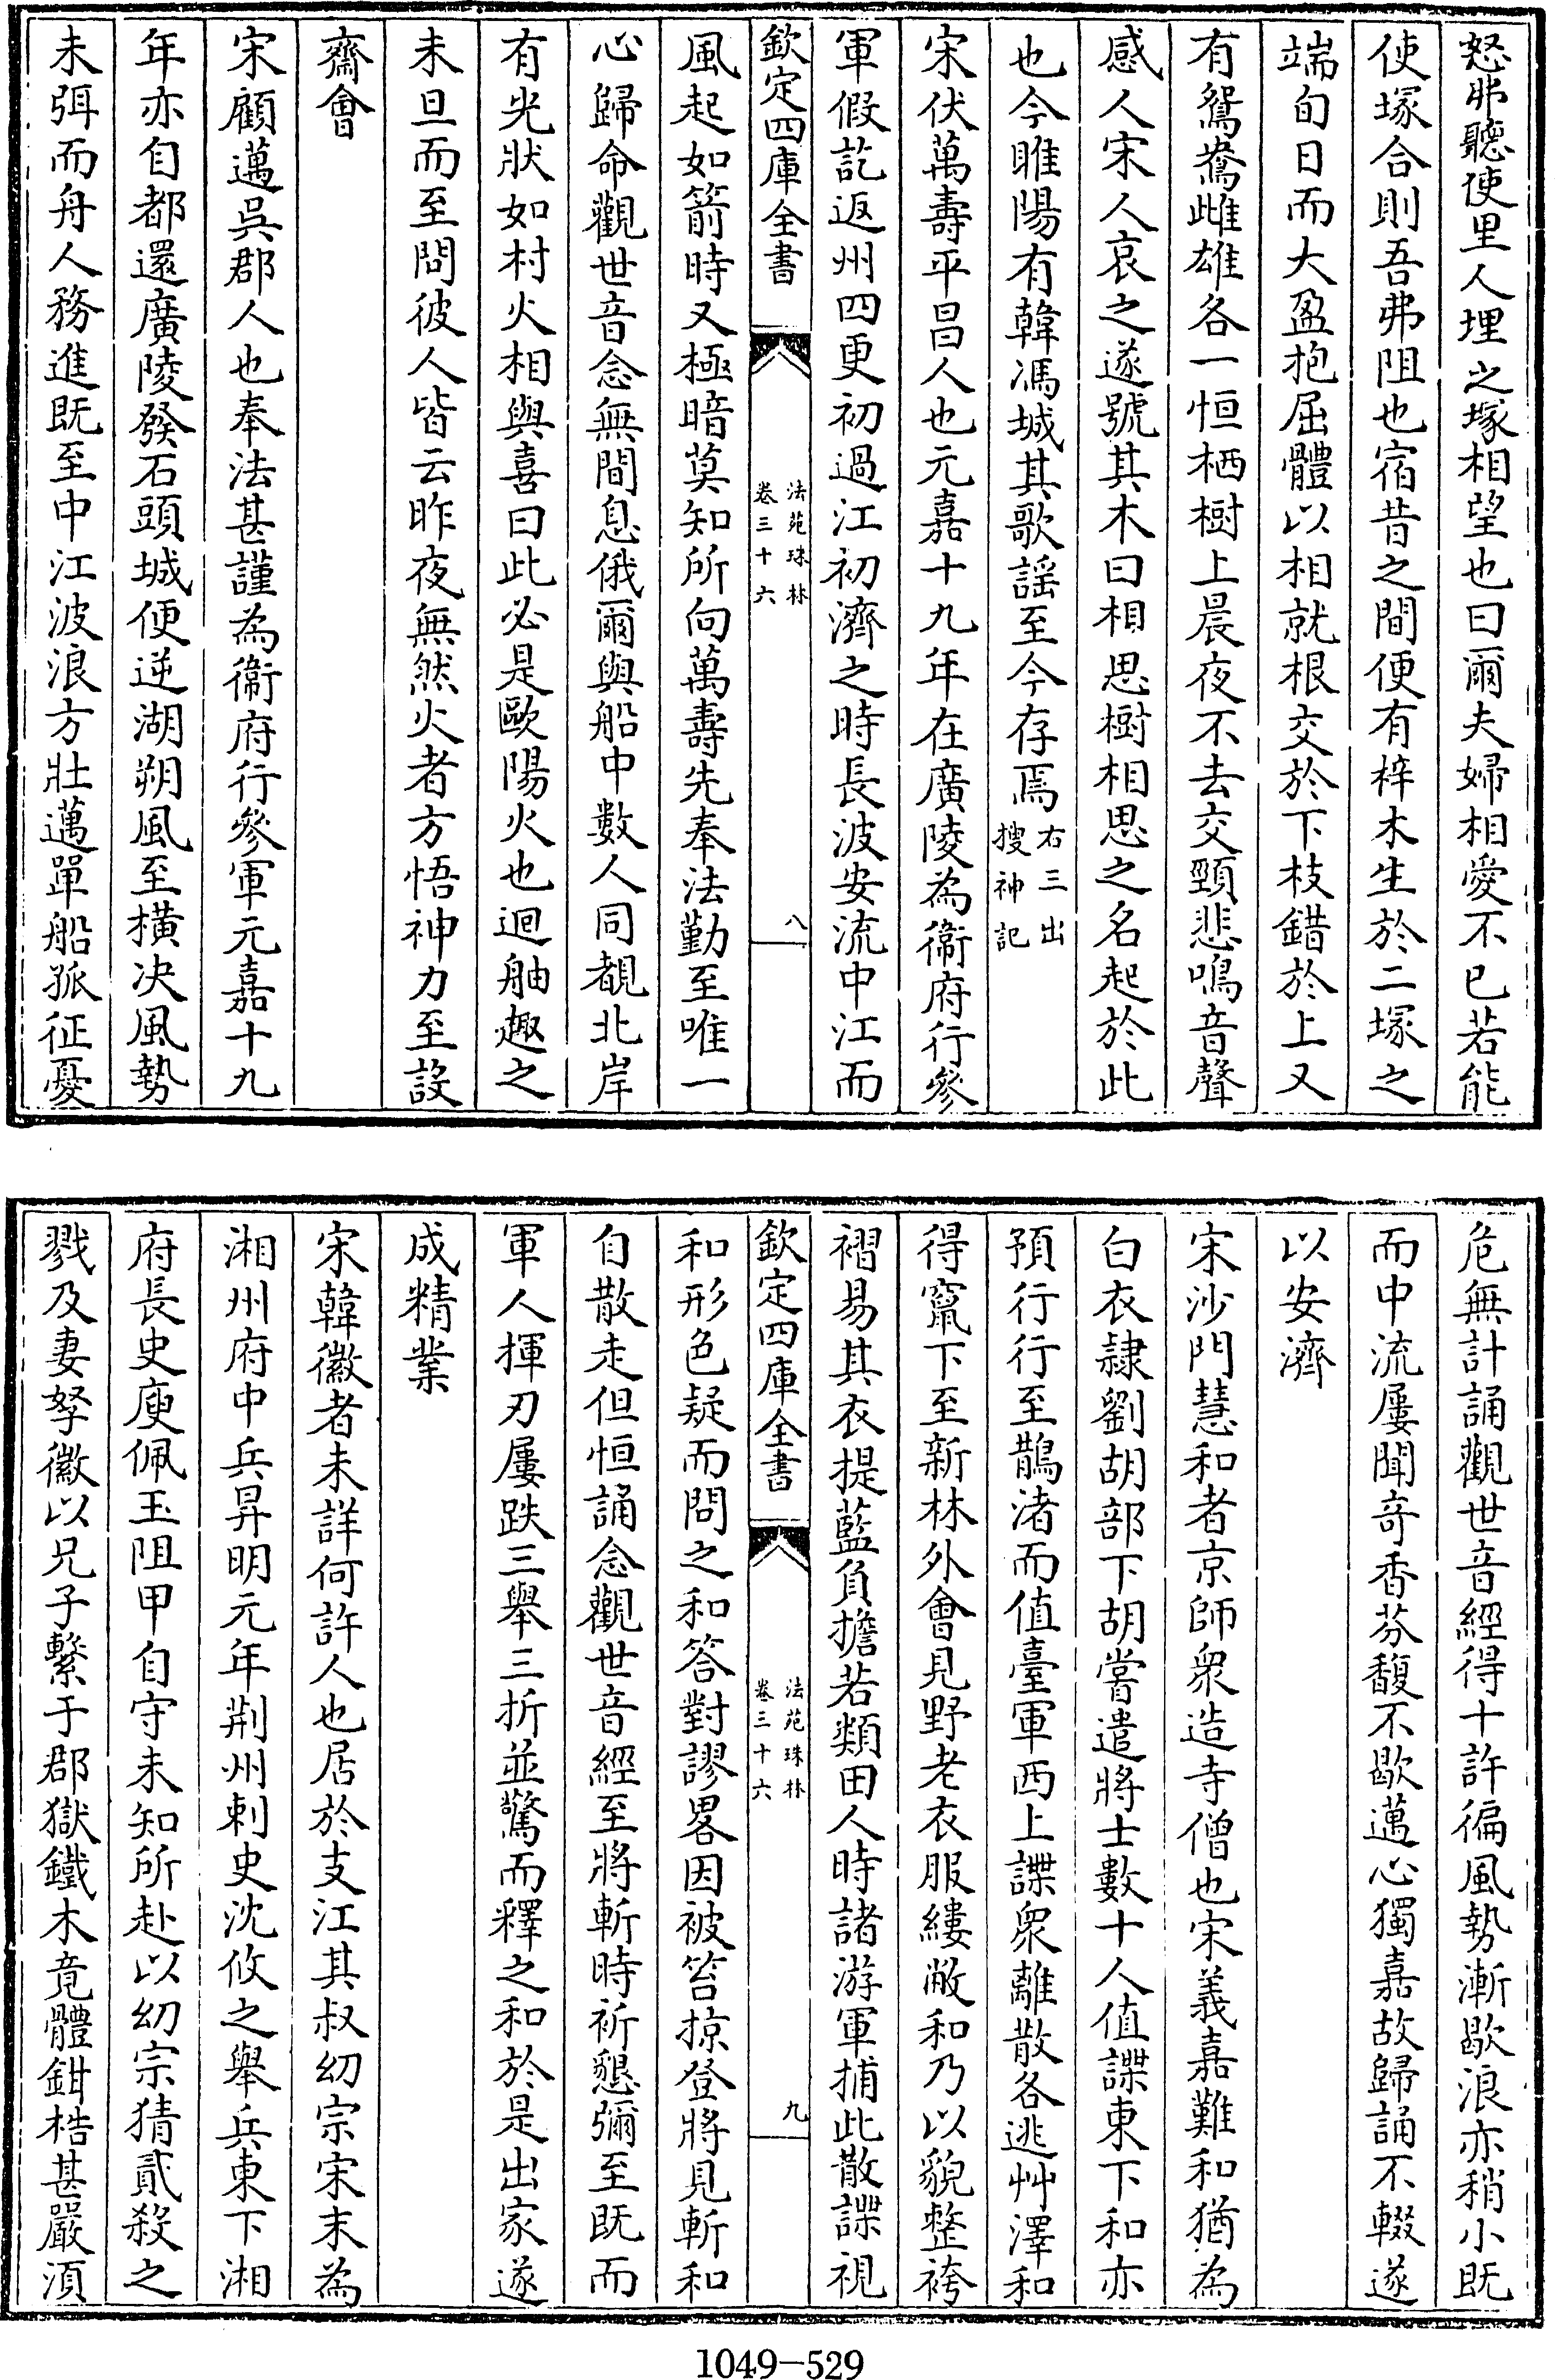 怒弗聽使里人埋之塚相望也曰爾夫婦相愛不已若能
使塚合則吾弗阻也宿昔之間便有梓木生於二塚之
端旬日而大盈抱屈體以相就根交於下枝錯於上又
有鴛鴦雌雄各一恒栖樹上晨夜不去交頸悲鳴音聲
感人宋人哀之遂號其木曰相思樹相思之名起於此
也今睢陽有韓馮城其歌謡至今存焉右三出搜神記
宋伏萬壽平昌人也元嘉十九年在廣陵為衞府行參
軍假訖返州四更初過江初濟之時長波安流中江而
欽定四庫全書
法苑珠林
卷三十六
八
風起如箭時又極暗莫知所向萬壽先奉法勤至唯一
心歸命觀世音念無間息俄爾與船中數人同覩北岸
有光狀如村火相與喜曰此必是歐陽火也迴舳趣之
未旦而至問彼人皆云昨夜無然火者方悟神力至設
齋會
宋顧邁吳郡人也奉法甚謹為衞府行參軍元嘉十九
年亦自都還廣陵發石頭城便逆湖朔風至橫決風勢
未弭而舟人務進既至中江波浪方壯邁單船孤征憂
危無計誦觀世音經得十許徧風勢漸歇浪亦稍小既
而中流屢聞奇香芬馥不歇邁心獨嘉故歸誦不輟遂
以安濟
宋沙門慧和者京師衆造寺僧也宋義嘉難和猶為
白衣隸劉胡部下胡嘗遣將士數十人值諜東下和亦
預行行至鵲渚而值臺軍西上諜衆離散各逃艸澤和
得竄下至新林外會見野老衣服縷敝和乃以貌整袴
褶易其衣提藍負擔若類田人時諸游軍捕此散諜視
欽定四庫全書
法苑珠林
卷三十六
九
和形色疑而問之和答對謬畧因被笞掠登將見斬和
自散走但恒誦念觀世音經至將斬時祈懇彌至既而
軍人揮刃屢跌三舉三折並驚而釋之和於是出家遂
成精業
宋韓徽者未詳何許人也居於支江其叔幼宗宋末為
湘州府中兵昇明元年荆州刺史沈攸之舉兵東下湘
府長史庾佩玉阻甲自守未知所赴以幼宗猜貳殺之
戮及妻孥徽以兄子繫于郡獄鐵木竟體鉗梏甚嚴湏
1049-529